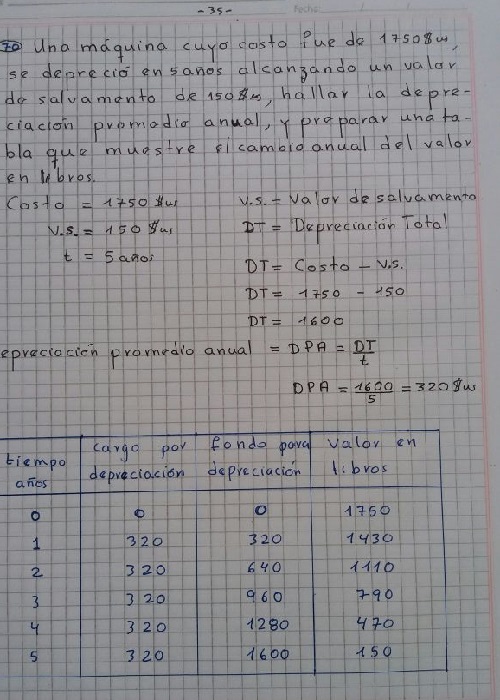 - 35 -
Fecha:
70 Una máquina cuyo costo fue de 1750$us,
se depreció en 5 años alcanzando un valor
de salvamento de 150$us, hallar la depre-
ciación promedio anual, y preparar una ta-
bla que muestre el cambio anual del valor
en libros.
Costo = 1750 $us V.S. = Valor de salvamento
V.S. = 150 $us DT = Depreciación Total
t = 5 años
DT = Costo - V.S.
DT = 1750 - 150
DT = 1600
epreciación promedio anual = DPA = DT/t
DPA = 1600/5 = 320 $us
tiempo años | cargo por depreciación | fondo para depreciación | valor en libros
0 0 0 1750
1 320 320 1430
2 320 640 1110
3 320 960 790
4 320 1280 470
5 320 1600 150